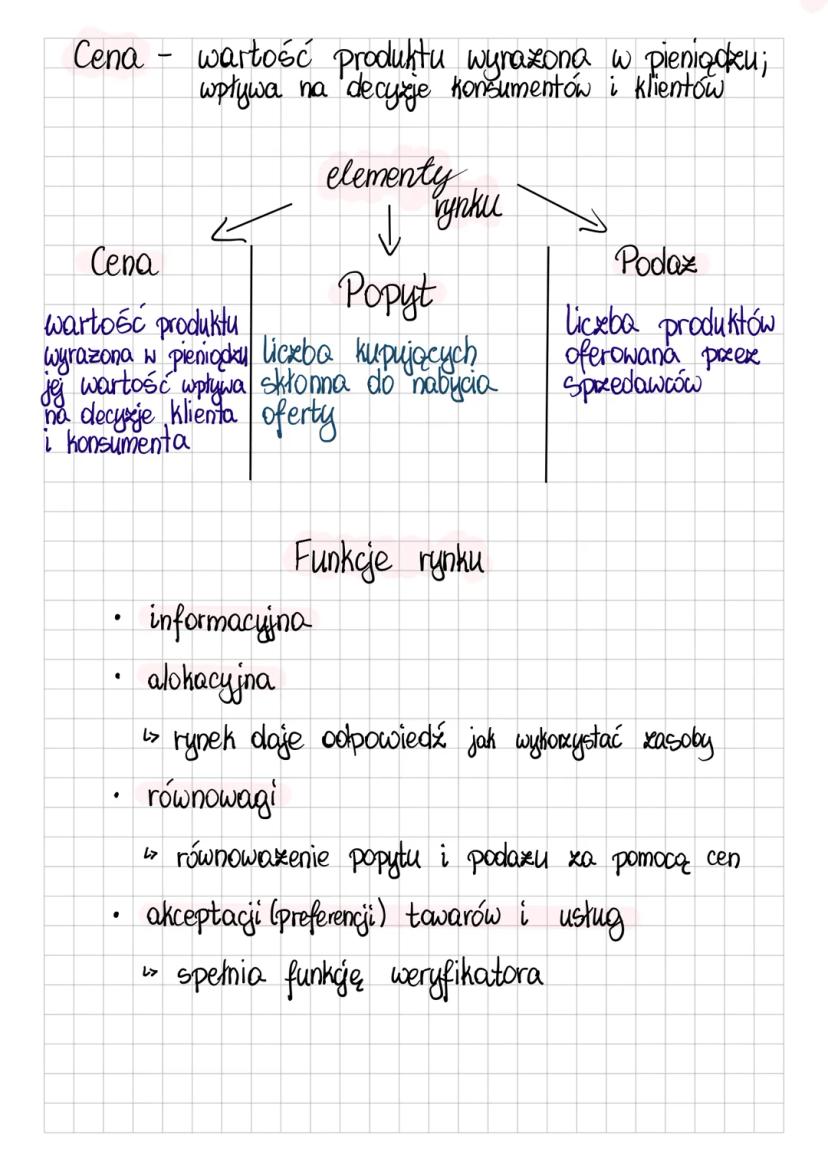 Cena - wartość produktu wyrażona w pieniądzu;
wpływa na decyzje konsumentów i klientów
elementy
rynku
Cena
wartość produktu
wyrażona w pieniądzu
jej wartość wpływa
na decyzje klienta
i konsumenta
Popyt
liczba kupujących
skłonna do nabycia
oferty
Podaż
liczba produktów
oferowana przez
sprzedawców
Funkcje rynku
• informacyjna
• alokacyjna
↳ rynek daje odpowiedź jak wykorzystać zasoby
• równowagi
↳ równoważenie popytu i podażu za pomocą cen
• akceptacji (preferencji) towarów i usług
↳ spełnia funkcję weryfikatora